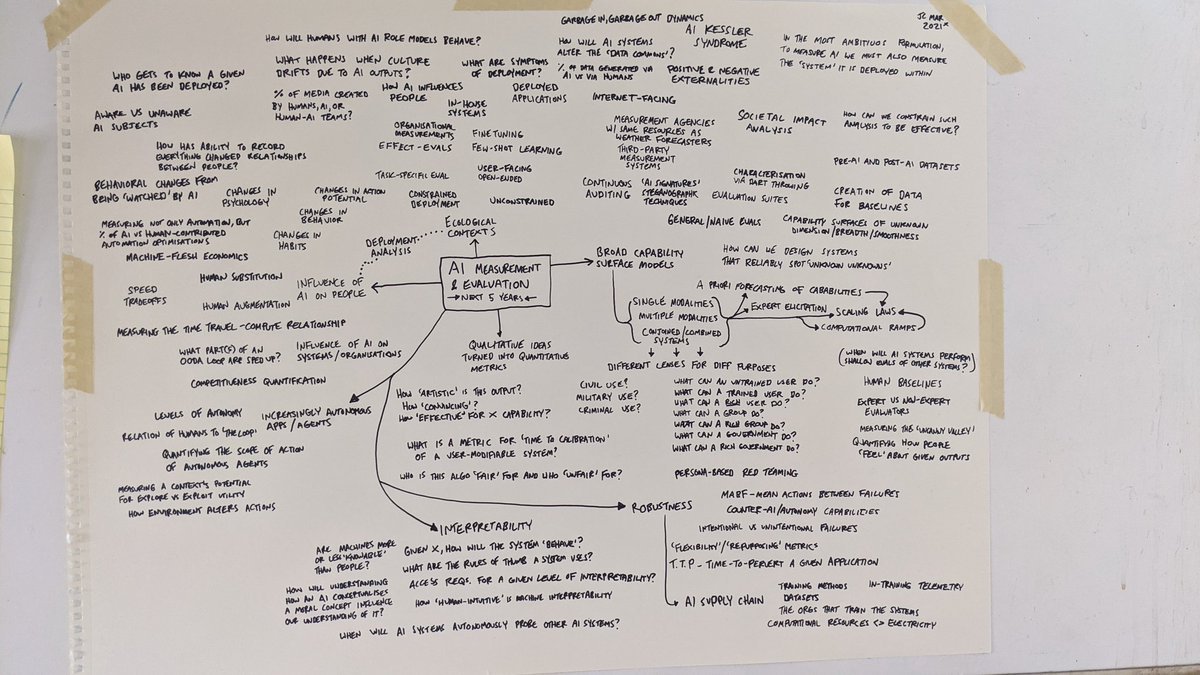 GARBAGE IN, GARBAGE OUT DYNAMICS
JC MAR
2021
AI KESSLER
SYNDROME
HOW WILL HUMANS WITH AI ROLE MODELS BEHAVE?
HOW WILL AI SYSTEMS
ALTER THE 'DATA COMMONS'?
% OF DATA GENERATED VIA
AI VS VIA HUMANS
IN THE MOST AMBITIOUS FORMULATION,
TO MEASURE AI WE MUST ALSO MEASURE
THE 'SYSTEM' IT IS DEPLOYED WITHIN
WHO GETS TO KNOW A GIVEN
AI HAS BEEN DEPLOYED?
WHAT HAPPENS WHEN CULTURE
DRIFTS DUE TO AI OUTPUTS?
WHAT ARE SYMPTOMS
OF DEPLOYMENT?
POSITIVE & NEGATIVE
EXTERNALITIES
% OF MEDIA CREATED
BY HUMANS, AI, OR
HUMAN-AI TEAMS?
HOW AI INFLUENCES
PEOPLE
IN-HOUSE
SYSTEMS
DEPLOYED
APPLICATIONS
INTERNET-FACING
AWARE VS UNAWARE
AI SUBJECTS
ORGANISATIONAL
MEASUREMENTS
FINETUNING
MEASUREMENT AGENCIES
W/ SAME RESOURCES AS
WEATHER FORECASTERS
SOCIETAL IMPACT
ANALYSIS
HOW CAN WE CONSTRAIN SUCH
ANALYSIS TO BE EFFECTIVE?
HOW HAS ABILITY TO RECORD
EVERYTHING CHANGED RELATIONSHIPS
BETWEEN PEOPLE?
EFFECT-EVALS
FEW-SHOT LEARNING
THIRD-PARTY
MEASUREMENT
SYSTEMS
PRE-AI AND POST-AI DATASETS
TASK-SPECIFIC EVAL
USER-FACING
OPEN-ENDED
CHARACTERISATION
VIA DART THROWING
BEHAVIORAL CHANGES FROM
BEING 'WATCHED' BY AI
CHANGES IN
PSYCHOLOGY
CHANGES IN ACTION
POTENTIAL
CONSTRAINED
DEPLOYMENT
UNCONSTRAINED
CONTINUOUS
AUDITING
'AI SIGNATURES'
STEGANOGRAPHIC
TECHNIQUES
EVALUATION SUITES
CREATION OF DATA
FOR BASELINES
CHANGES IN
BEHAVIOR
MEASURING NOT ONLY AUTOMATION, BUT
% OF AI VS HUMAN-CONTRIBUTED
AUTOMATION OPTIMISATIONS
CHANGES IN
HABITS
DEPLOYMENT
ANALYSIS
ECOLOGICAL
CONTEXTS
GENERAL/NAIVE EVALS
CAPABILITY SURFACES OF UNKNOWN
DIMENSION/BREADTH/SMOOTHNESS
MACHINE-FLESH ECONOMICS
AI MEASUREMENT
& EVALUATION
NEXT 5 YEARS
BROAD CAPABILITY
SURFACE MODELS
HOW CAN WE DESIGN SYSTEMS
THAT RELIABLY SPOT 'UNKNOWN UNKNOWNS'
HUMAN SUBSTITUTION
INFLUENCE OF
AI ON PEOPLE
SPEED
TRADEOFFS
HUMAN AUGMENTATION
A PRIORI FORECASTING OF CAPABILITIES
SINGLE MODALITIES
MULTIPLE MODALITIES
CONJOINED/COMBINED
SYSTEMS
EXPERT ELICITATION
SCALING LAWS
COMPUTATIONAL RAMPS
MEASURING THE TIME TRAVEL-COMPUTE RELATIONSHIP
WHAT PART(S) OF AN
OODA LOOP ARE SPED UP?
INFLUENCE OF AI ON
SYSTEMS/ORGANISATIONS
QUALITATIVE IDEAS
TURNED INTO QUANTITATIVE
METRICS
DIFFERENT LENSES FOR DIFF PURPOSES
(WHEN WILL AI SYSTEMS PERFORM
SHALLOW EVALS OF OTHER SYSTEMS?)
COMPETITIVENESS QUANTIFICATION
CIVIL USE?
MILITARY USE?
CRIMINAL USE?
WHAT CAN AN UNTRAINED USER DO?
WHAT CAN A TRAINED USER DO?
WHAT CAN A RICH USER DO?
WHAT CAN A GROUP DO?
WHAT CAN A RICH GROUP DO?
WHAT CAN A GOVERNMENT DO?
WHAT CAN A RICH GOVERNMENT DO?
HUMAN BASELINES
EXPERT VS NON-EXPERT
EVALUATORS
MEASURING THE 'UNCANNY VALLEY'
QUANTIFYING HOW PEOPLE
'FEEL' ABOUT GIVEN OUTPUTS
HOW 'ARTISTIC' IS THIS OUTPUT?
HOW 'CONVINCING'?
HOW 'EFFECTIVE' FOR X CAPABILITY?
LEVELS OF AUTONOMY
INCREASINGLY AUTONOMOUS
APPS/AGENTS
RELATION OF HUMANS TO 'THE LOOP'
QUANTIFYING THE SCOPE OF ACTION
OF AUTONOMOUS AGENTS
WHAT IS A METRIC FOR 'TIME TO CALIBRATION'
OF A USER-MODIFIABLE SYSTEM?
WHO IS THIS ALGO 'FAIR' FOR AND WHO 'UNFAIR' FOR?
PERSONA-BASED RED TEAMING
MEASURING A CONTEXT'S POTENTIAL
FOR EXPLORE VS EXPLOIT UTILITY
HOW ENVIRONMENT ALTERS ACTIONS
ROBUSTNESS
MABF-MEAN ACTIONS BETWEEN FAILURES
COUNTER-AI/AUTONOMY CAPABILITIES
INTENTIONAL VS UNINTENTIONAL FAILURES
'FLEXIBILITY'/'REPURPOSING' METRICS
T.T.P - TIME-TO-PERVERT A GIVEN APPLICATION
INTERPRETABILITY
ARE MACHINES MORE
OR LESS 'KNOWABLE'
THAN PEOPLE?
GIVEN X, HOW WILL THE SYSTEM 'BEHAVE'?
WHAT ARE THE RULES OF THUMB A SYSTEM USES?
ACCESS REQS. FOR A GIVEN LEVEL OF INTERPRETABILITY?
HOW 'HUMAN-INTUITIVE' IS MACHINE INTERPRETABILITY
HOW WILL UNDERSTANDING
HOW AN AI CONCEPTUALISES
A MORAL CONCEPT INFLUENCE
OUR UNDERSTANDING OF IT?
WHEN WILL AI SYSTEMS AUTONOMOUSLY PROBE OTHER AI SYSTEMS?
AI SUPPLY CHAIN
TRAINING METHODS
IN-TRAINING TELEMETRY
DATASETS
THE ORGS THAT TRAIN THE SYSTEMS
COMPUTATIONAL RESOURCES <> ELECTRICITY